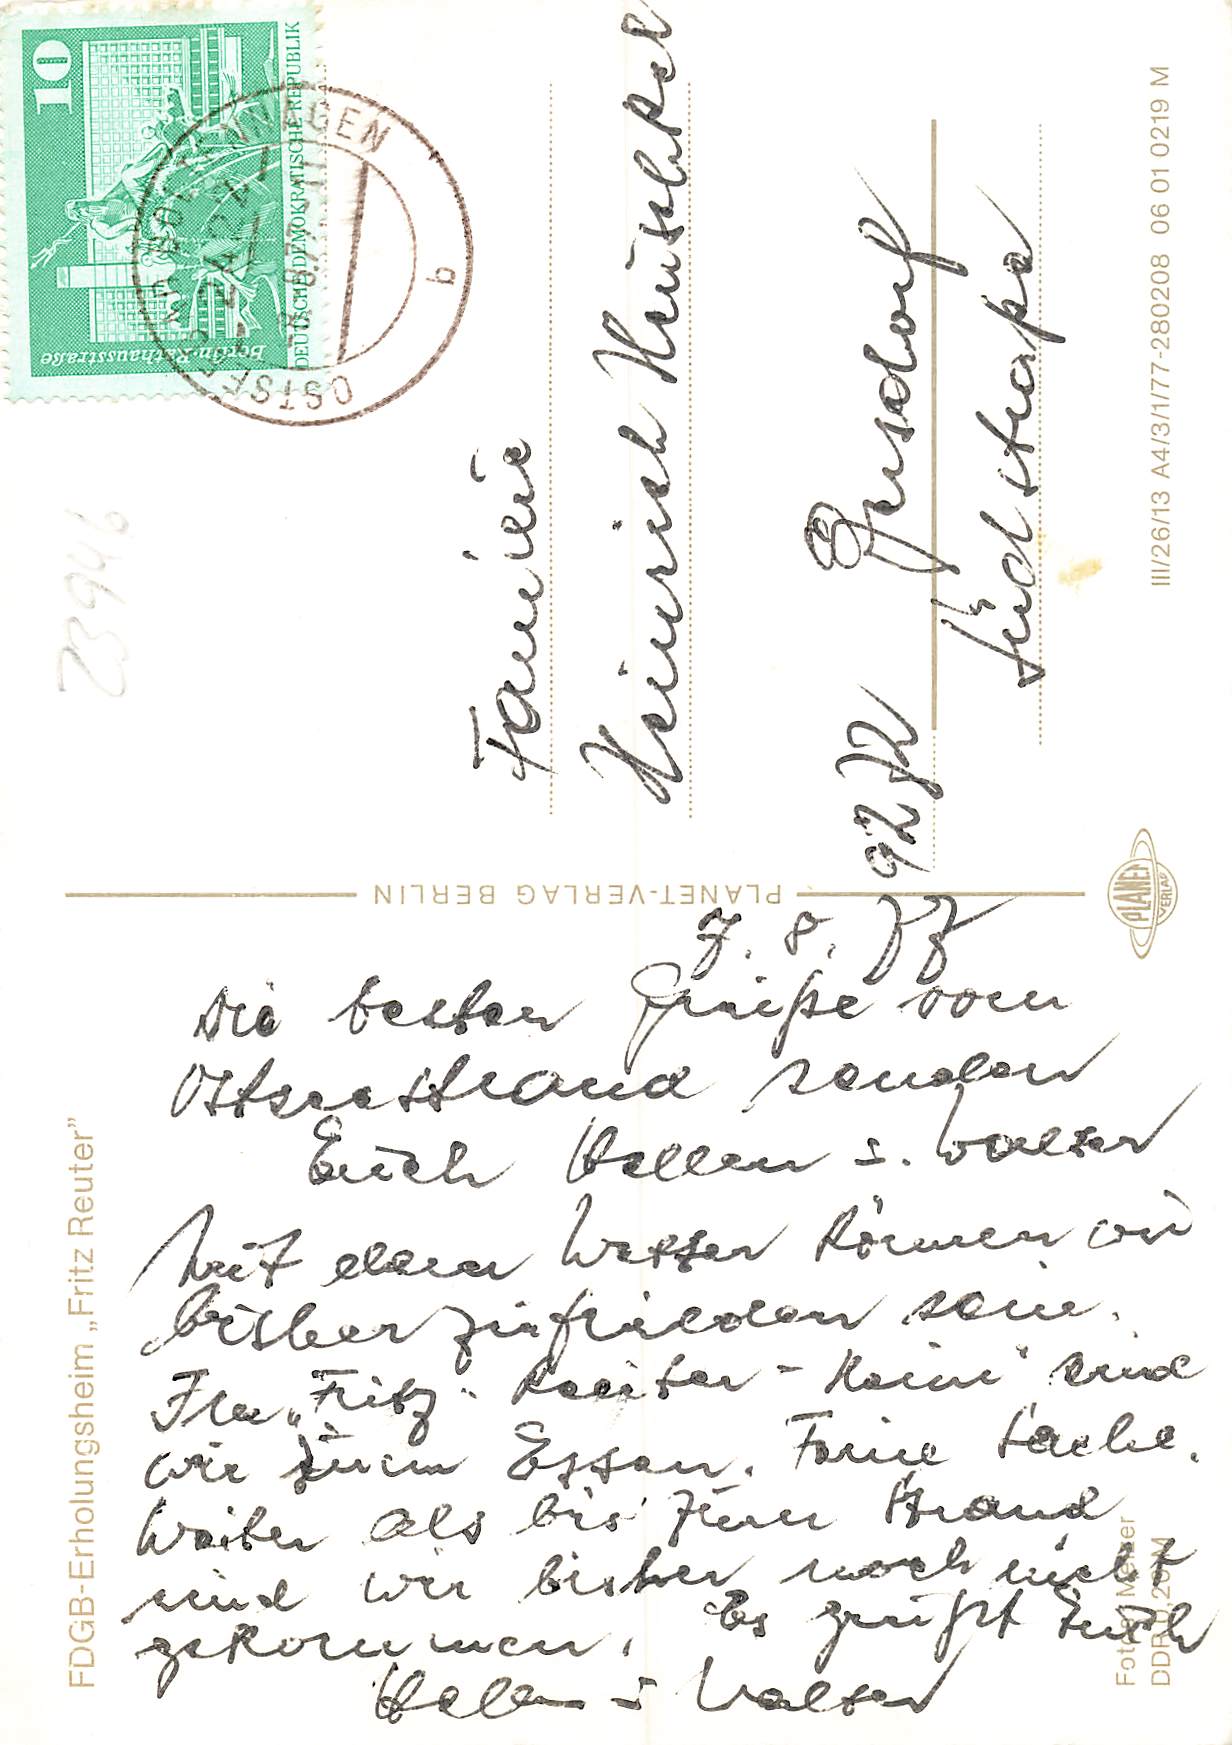 FDGB-Erholungsheim „Fritz Reuter"
7. 8. 77
Die besten Grüße vom
Ostseestrand senden
Euch Hellen u. Walter
Mit dem Wetter können wir
bisher zufrieden sein.
Im „Fritz-Reuter-Heim" sind
wir zum Essen. Feine Sache.
Weiter als bis zum Strand
sind wir bisher noch nicht
gekommen. Es grüßt Euch
Hellen u Walter
Foto: Melzer
DDR 0,20 M
PLANET-VERLAG BERLIN
PLANET
VERLAG
10
Berlin, Rathausstraße
DEUTSCHE DEMOKRATISCHE REPUBLIK
OSTSEEBAD BOLTENHAGEN
b
23946
Familie
Heinrich
9272
Gersdorf
Südstraße
III/26/13 A4/3/1/77-280208 06 01 0219 M